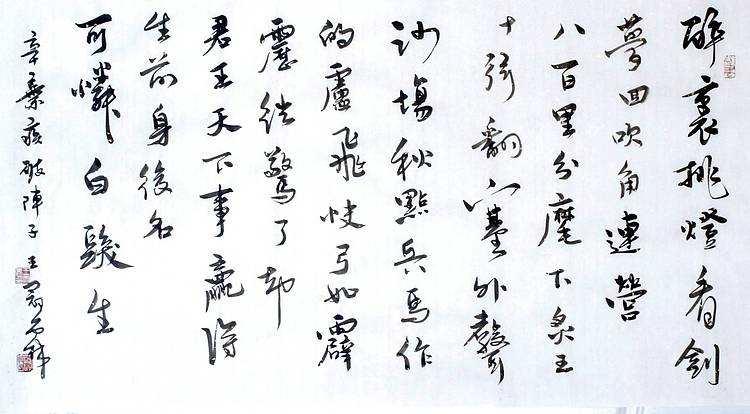 醉裏挑燈看劍
夢回吹角連營
八百里分麾下炙五
十弦翻塞外聲
沙場秋點兵馬作
的盧飛快弓如霹
靂弦驚了却
君王天下事贏得
生前身後名
可憐白髮生
辛棄疾破陣子 王